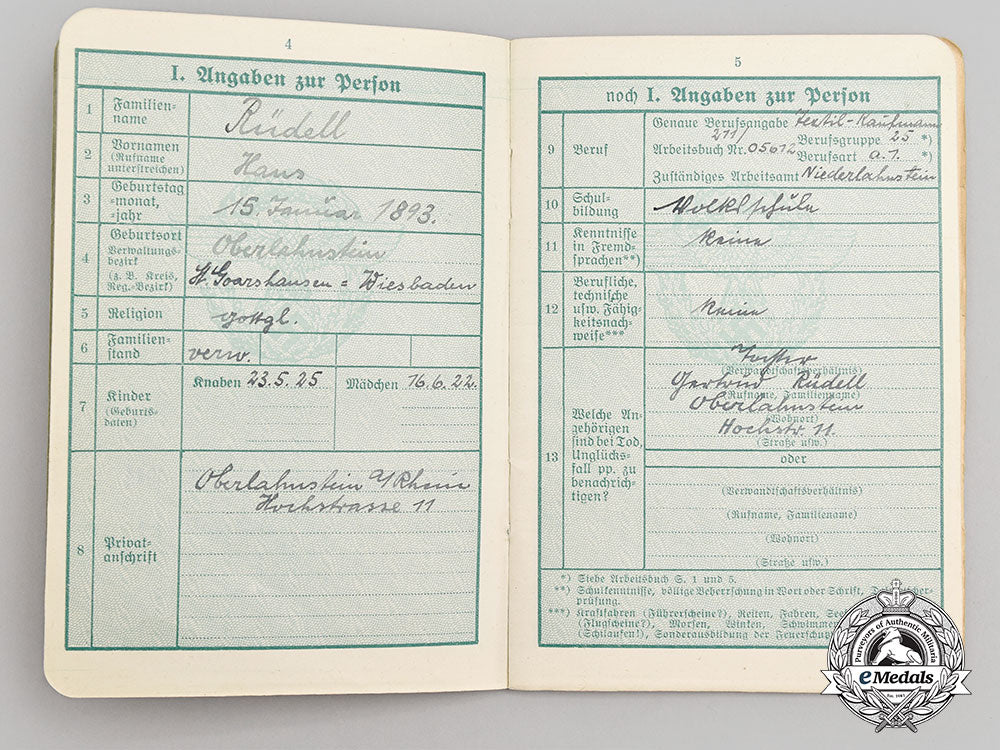 4
I. Angaben zur Person
1 Familien-
name
Rüdell
2 Vornamen
(Rufname
unterstreichen)
Hans
3 Geburtstag
-monat,
-jahr
15. Januar 1893.
4 Geburtsort
Verwaltungs-
bezirk
(z. B. Kreis,
Reg.-Bezirk)
Oberlahnstein
St. Goarshausen = Wiesbaden
5 Religion
gottgl.
6 Familien-
stand
verw.
7 Kinder
(Geburts-
daten)
Knaben 23.5.25 Mädchen 16.6.22.
8 Privat-
anschrift
Oberlahnstein a/Rhein
Hochstrasse 11
5
noch I. Angaben zur Person
9 Beruf
Genaue Berufsangabe Textil-Kaufmann
Arbeitsbuch Nr. 211/05612
Berufsgruppe 25 *)
Berufsart a.1. *)
Zuständiges Arbeitsamt Niederlahnstein
10 Schul-
bildung
Volksschule
11 Kenntnisse
in Fremd-
sprachen**)
keine
12 Berufliche,
technische
usw. Fähig-
keitsnach-
weise***
keine
13 Welche An-
gehörigen
sind bei Tod,
Unglücks-
fall pp. zu
benachrich-
tigen?
Tochter
(Verwandtschaftsverhältnis)
Gertrud Rüdell
(Rufname, Familienname)
Oberlahnstein
(Wohnort)
Hochstr. 11.
(Straße usw.)
oder
(Verwandtschaftsverhältnis)
(Rufname, Familienname)
(Wohnort)
(Straße usw.)
*) Siehe Arbeitsbuch S. 1 und 5.
**) Schulkenntnisse, völlige Beherrschung in Wort oder Schrift,
prüfung.
***) Kraftfahren (Führerscheine?), Reiten, Fahren,
(Flugscheine?), Morsen, Winken, Schwimmen
(Schlaufen!), Sonderausbildung der
Purveyors of Authentic Militaria
eMedals